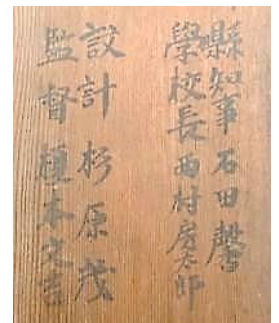 縣知事 石田馨
學校長 西村房太郎
設計 杉原茂
監督 槇本文吉